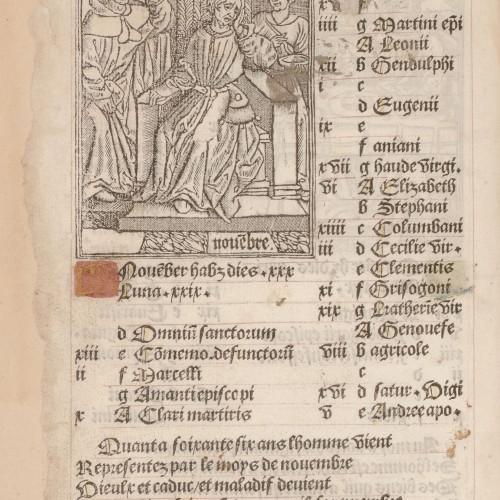 nouẽbre.
Nouẽber habz dies .xxx
Luna .xxix.
d Omniũ sanctorum
xiii e Cõmemo. defunctorũ
ii f Marcelli
g Amanti episcopi
x A Clari martiris
xv f
iiii g Martini ep̃i
A Leonii
xii b Gendulphi
i c
d Eugenii
ix e
f aniani
xvii g haude virgi.
vi A Elizabeth
b Stephani
xiiii c Columbani
iii d Cecilie vir.
e Clementis
xi f Grisogoni
xix g Katherie vir
A Genouefe
viii b agricole
c
xvi d satur. Vigi
v e Andree apo.
Quant a soixante six ans lhomme vient
Representez par le moys de nouembre
Vieulx et caduc et maladif deuient